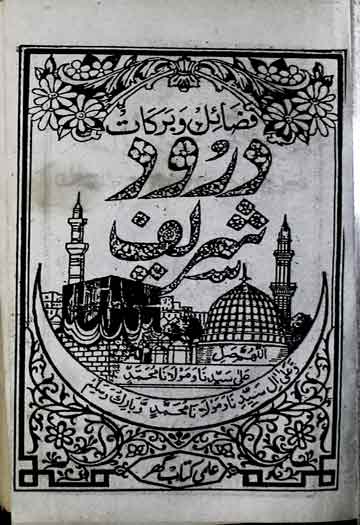 فضائل و برکات
درود
شریف
اللھم صل
علی سیدنا و مولانا محمد
و علی آل سیدنا و مولانا محمد و بارک وسلم
علمی کتاب گھر